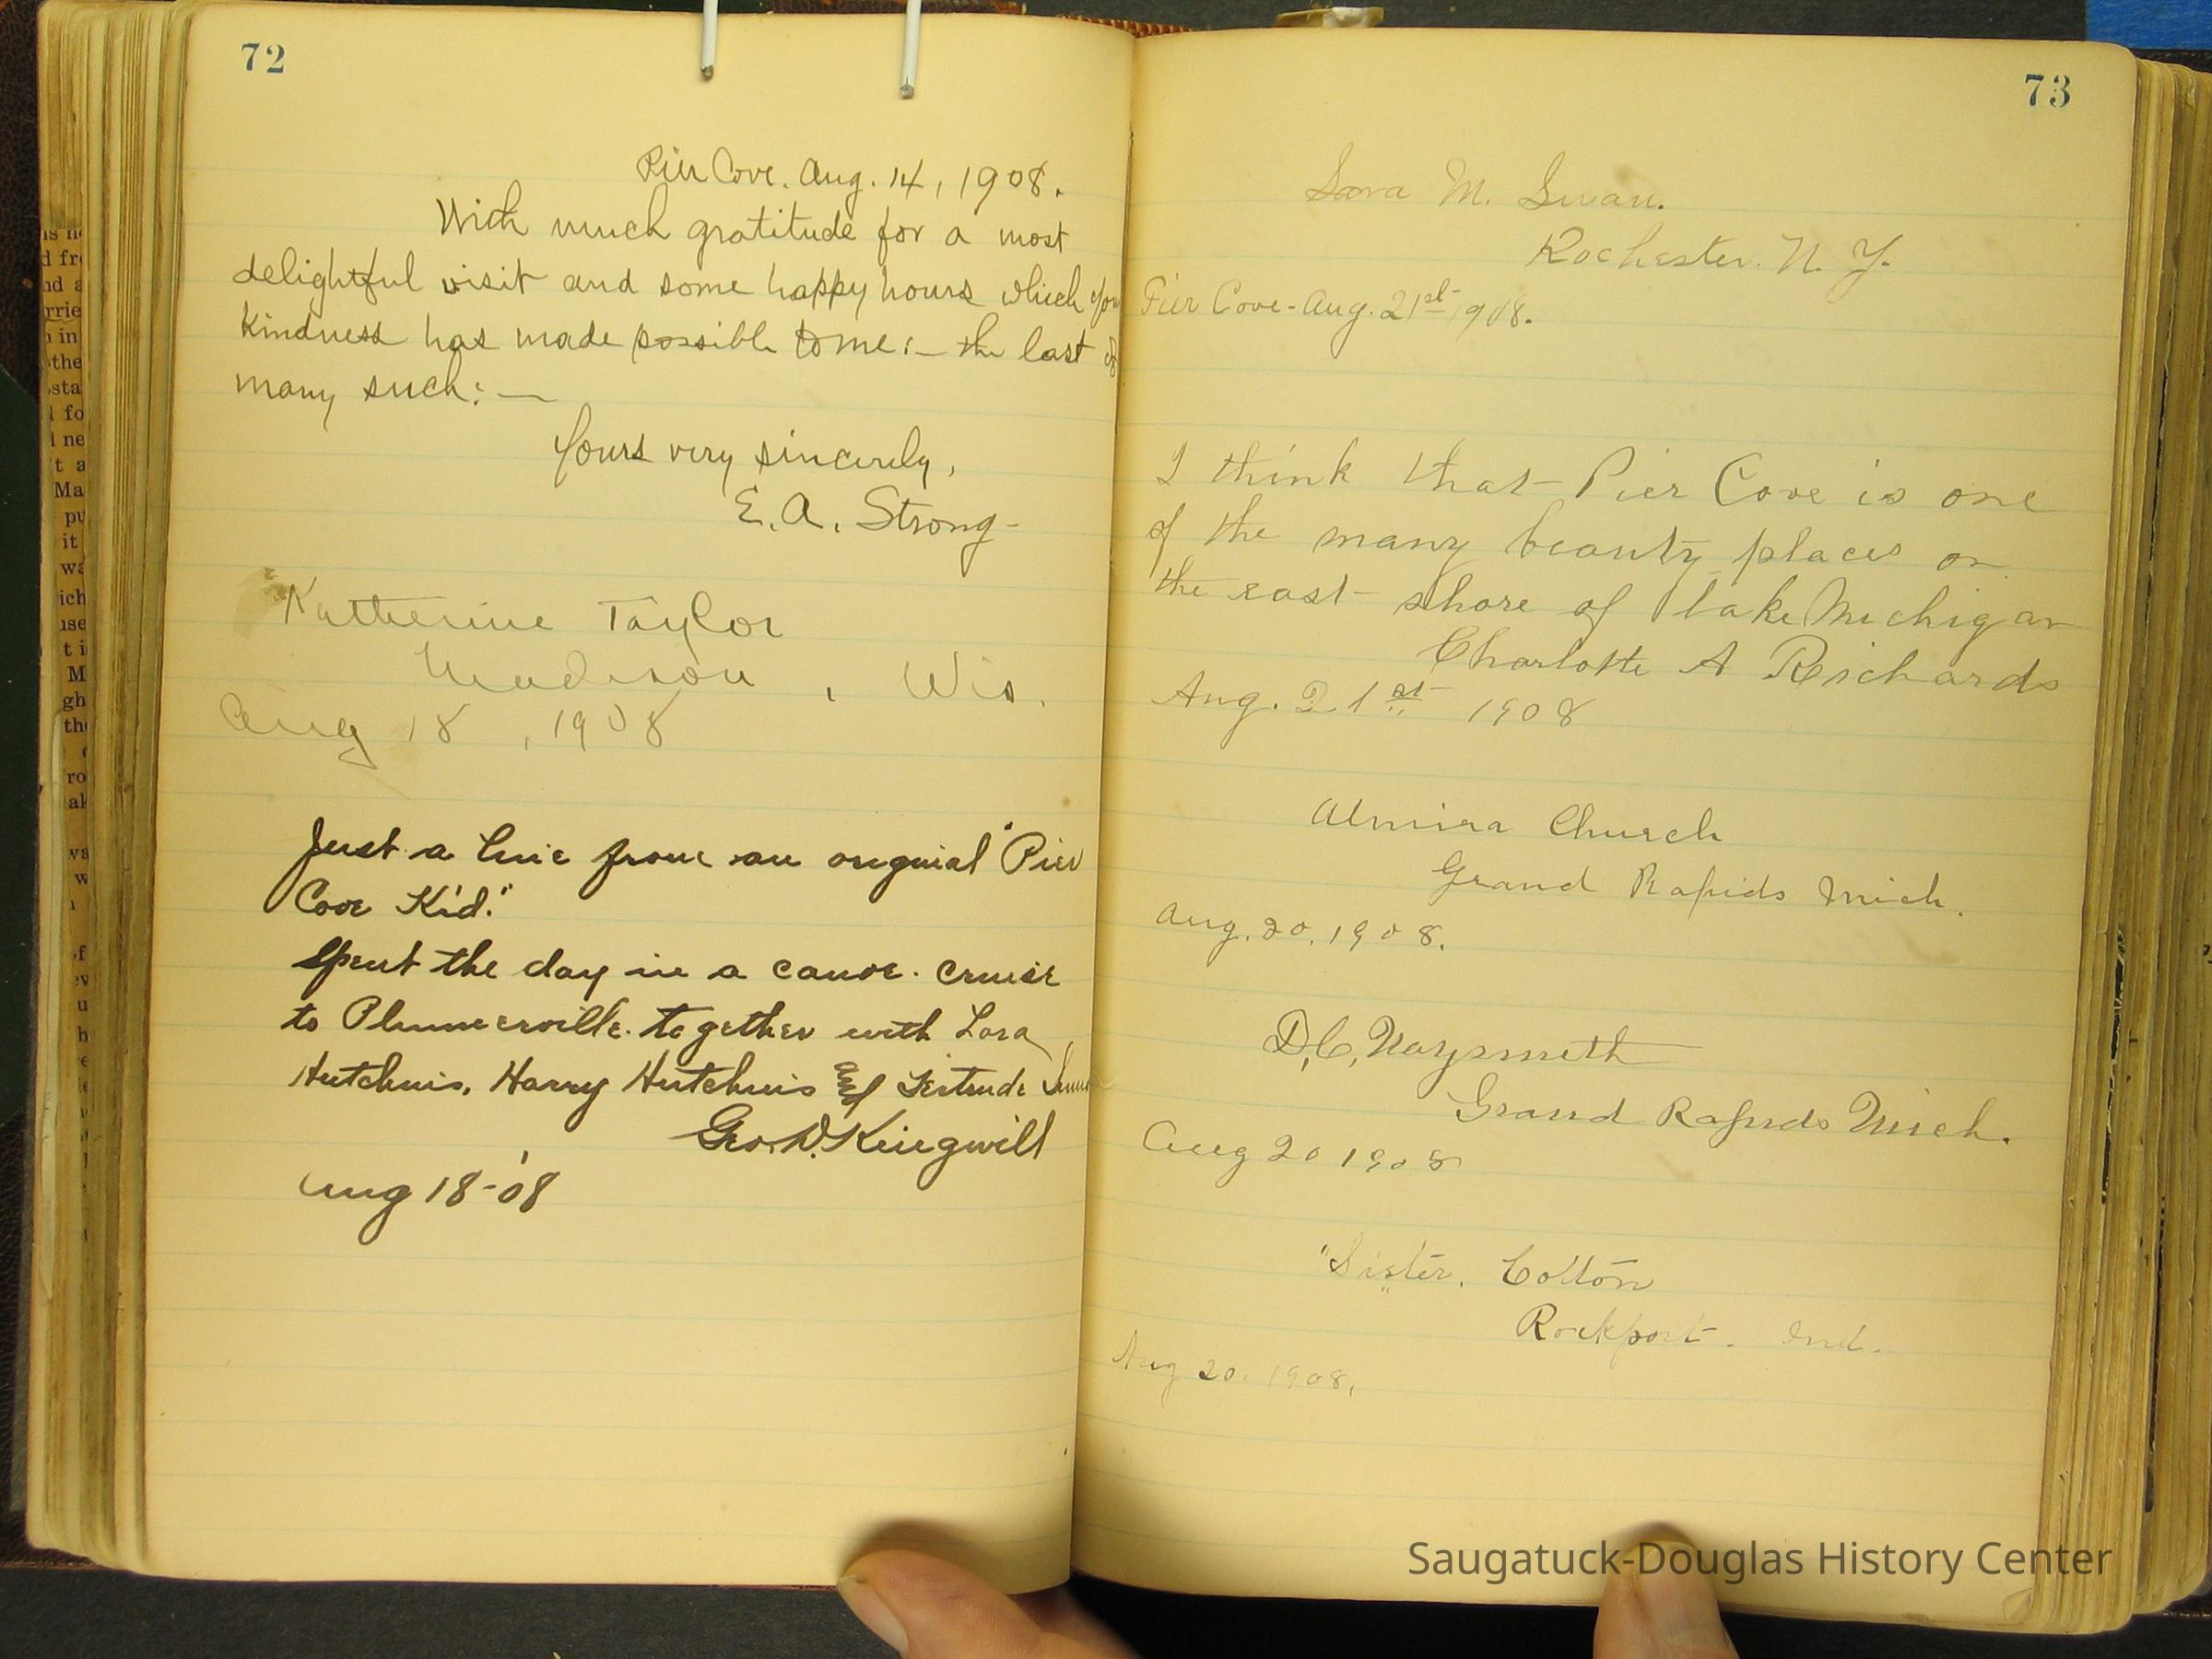 72
Pier Cove. Aug. 14, 1908.
With much gratitude for a most
delightful visit and some happy hours which you
kindness has made possible to me:— the last of
many such:—
Yours very sincerely,
E. A. Strong-
Katherine Taylor
Madison, Wis.
Aug 18, 1908
Just a line from an original "Pier
Cove Kid."
Spent the day in a canoe. cruise
to Plummerville. together with Lora
Hutchins, Harry Hutchins and Gertrude
Geo. W. Kingwill
Aug 18-'08
73
Sara M. Swan.
Rochester. N. Y.
Pier Cove-Aug. 21st 1908.
I think that Pier Cove is one
of the many beauty places on
the east shore of lake Michigan
Charlotte A Richards
Aug. 21st 1908
Almira Church
Grand Rapids Mich.
Aug. 20, 1908.
D, C, Naysmith
Grand Rapids Mich.
Aug 20 1908
"Sister" Cotton
Rockport. Ind.
Aug 20. 1908,
Saugatuck-Douglas History Center